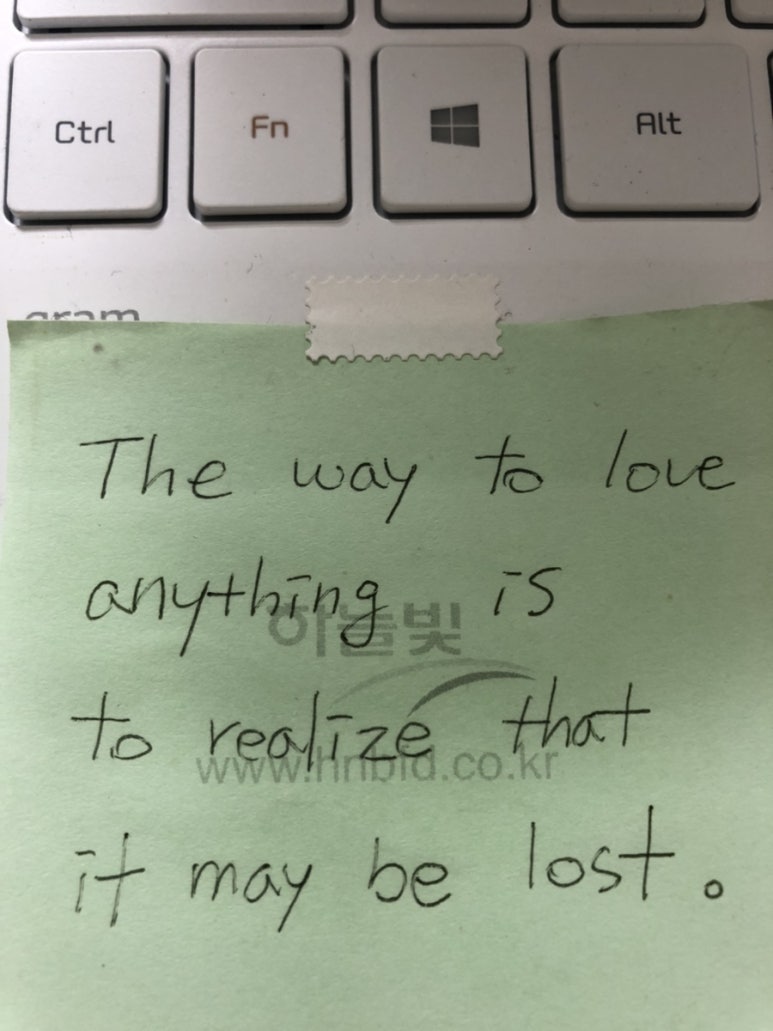 Ctrl Fn Alt
gram
The way to love
anything is
하늘빛
to realize that
www.hnbid.co.kr
it may be lost.